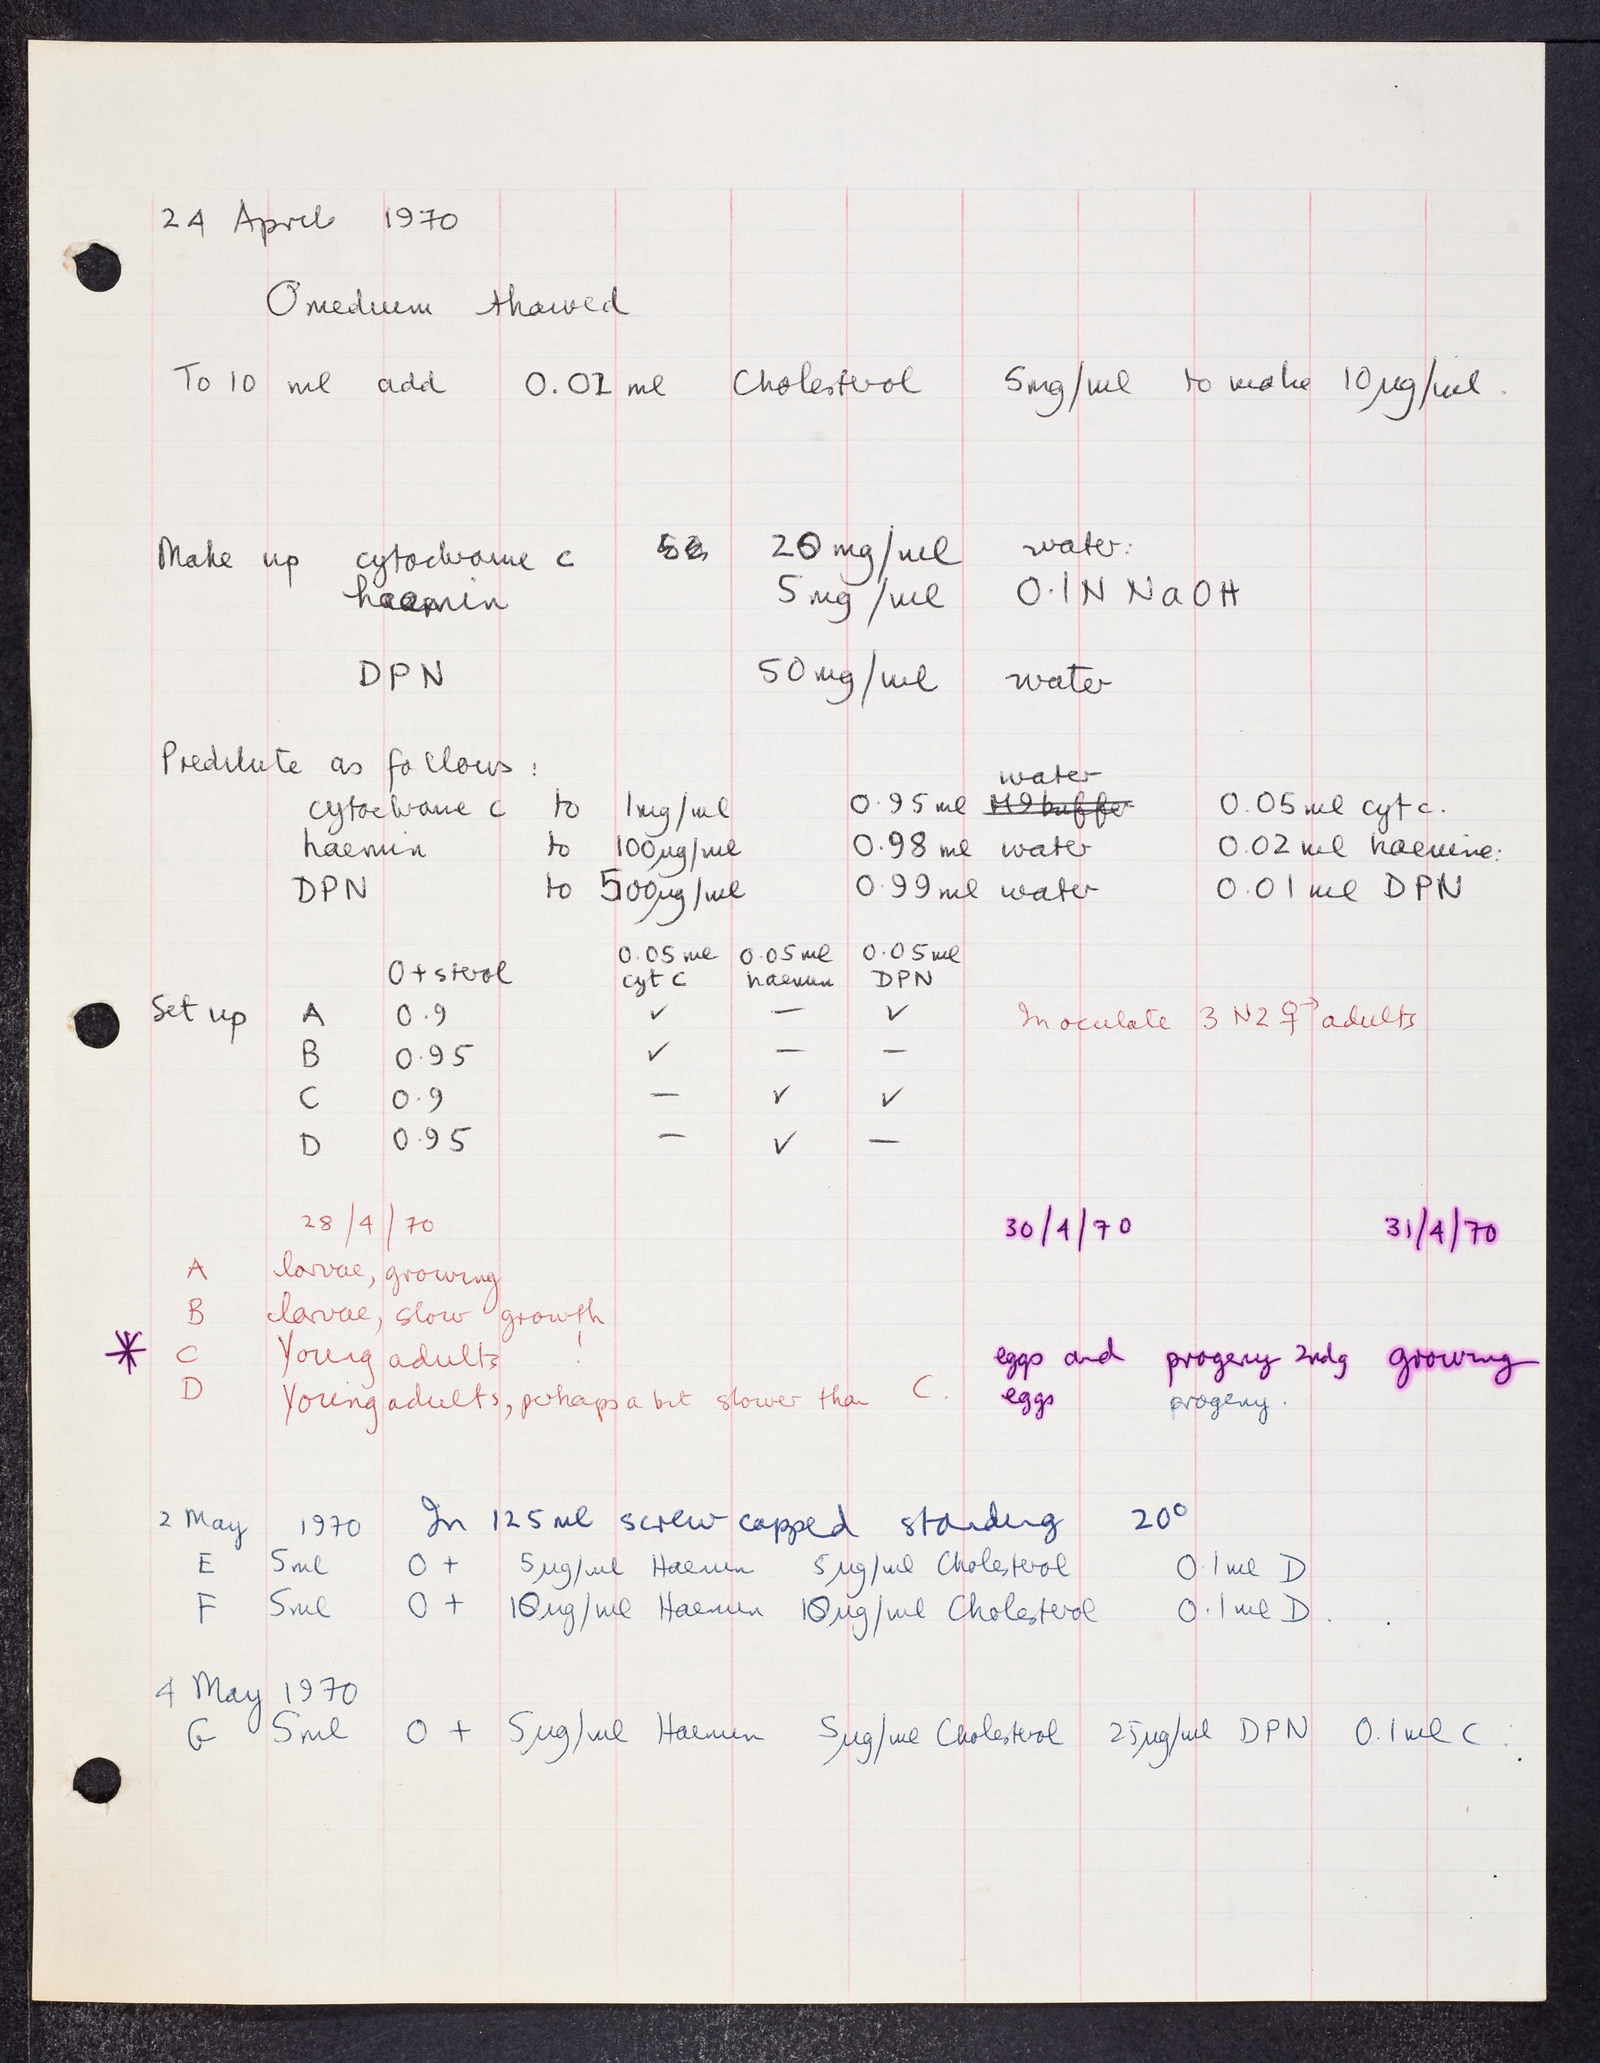 24 April 1970
O medium thawed
To 10 ml add 0.02 ml Cholesterol 5mg/ml to make 10µg/ml.
Make up cytochrome c 20mg/ml water:
haemin 5mg/ml 0.1N NaOH
DPN 50mg/ml water
Predilute as follows:
water
cytochrome c to 1mg/ml 0.95ml M9 buffer 0.05ml cyt c.
haemin to 100µg/ml 0.98 ml water 0.02 ml haemine:
DPN to 500µg/ml 0.99ml water 0.01 ml DPN
0.05ml 0.05ml 0.05ml
O + sterol cyt C haemin DPN
Set up A 0.9 ✓ — ✓ Inoculate 3 N2 ⚥ adults
B 0.95 ✓ — —
C 0.9 — ✓ ✓
D 0.95 — ✓ —
28/4/70 30/4/70 31/4/70
A larvae, growing
B larvae, slow growth
* C Young adults ! eggs and progeny 2ndg growing
D Young adults, perhaps a bit slower than C. eggs progeny.
2 May 1970 In 125ml screw capped standing 20°
E 5ml O + 5µg/ml Haemin 5µg/ml Cholesterol 0.1ml D
F 5ml O + 10µg/ml Haemin 10µg/ml Cholesterol 0.1ml D.
4 May 1970
G 5ml O + 5µg/ml Haemin 5µg/ml Cholesterol 25µg/ml DPN 0.1ml C: